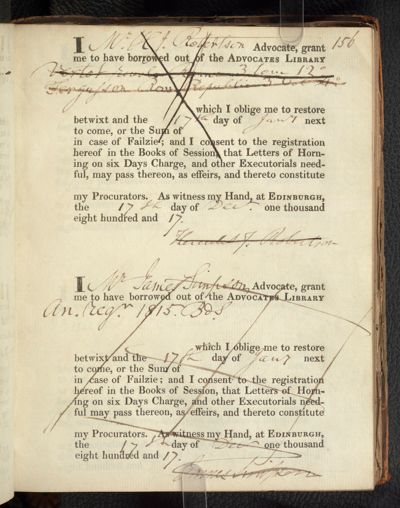 I Mr H. J. Robertson Advocate, grant 156
me to have borrowed out of the ADVOCATES LIBRARY
Vertot 3 tom 12º
Fergusson Rom Republic 3 Vol
which I oblige me to restore
betwixt and the 17th day of Jany next
to come, or the Sum of
in case of Failzie; and I consent to the registration
hereof in the Books of Session, that Letters of Horn-
ing on six Days Charge, and other Executorials need-
ful, may pass thereon, as effeirs, and thereto constitute
my Procurators. As witness my Hand, at EDINBURGH,
the 17th day of Decr. one thousand
eight hundred and 17.
J. Robertson
I Mr James Simpson Advocate, grant
me to have borrowed out of the ADVOCATES LIBRARY
An. Regr. 1815.
which I oblige me to restore
betwixt and the 17th day of Jany next
to come, or the Sum of
in case of Failzie; and I consent to the registration
hereof in the Books of Session, that Letters of Horn-
ing on six Days Charge, and other Executorials need-
ful may pass thereon, as effeirs, and thereto constitute
my Procurators. As witness my Hand, at EDINBURGH,
the 17th day of Decr one thousand
eight hundred and 17.
James Simpson